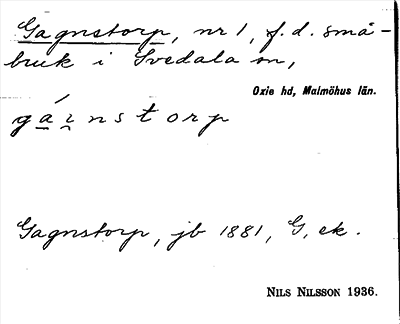 Gagnstorp, nr 1, f.d. små-
bruk i Svedala sn,
Oxie hd, Malmöhus län.
gá̱i̱nstorp
Gagnstorp, jb 1881, G, ek.
NILS NILSSON 1936.